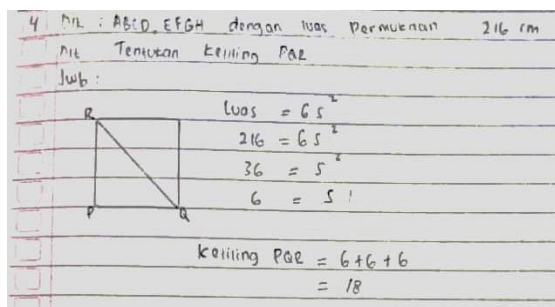 4 Dik : ABCD.EFGH dengan luas Permuknan 216 cm
Dit Tentukan Keliling PQR
Jwb :
R
P
Q
luas = 6 s²
216 = 6 s²
36 = s²
6 = s
Keliling PQR = 6+6+6
= 18